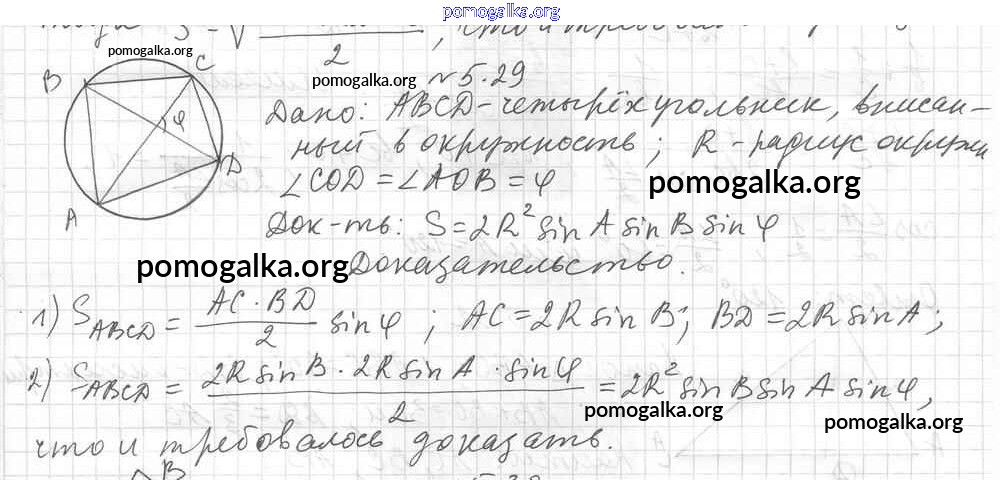 pomogalka.org
2
pomogalka.org
B
C
φ
D
A
pomogalka.org
№5.29
Дано: ABCD-четырёхугольник, вписан-
ный в окружность; R - радиус окружн
∠COD = ∠AOB = φ
pomogalka.org
Док-ть: S = 2R² sin A sin B sin φ
pomogalka.org
Доказательство.
1) S_ABCD = AC · BD / 2 sin φ ; AC = 2R sin B; BD = 2R sin A;
2) S_ABCD = 2R sin B · 2R sin A · sin φ / 2 = 2R² sin B sin A sin φ,
pomogalka.org
pomogalka.org
что и требовалось доказать.
B